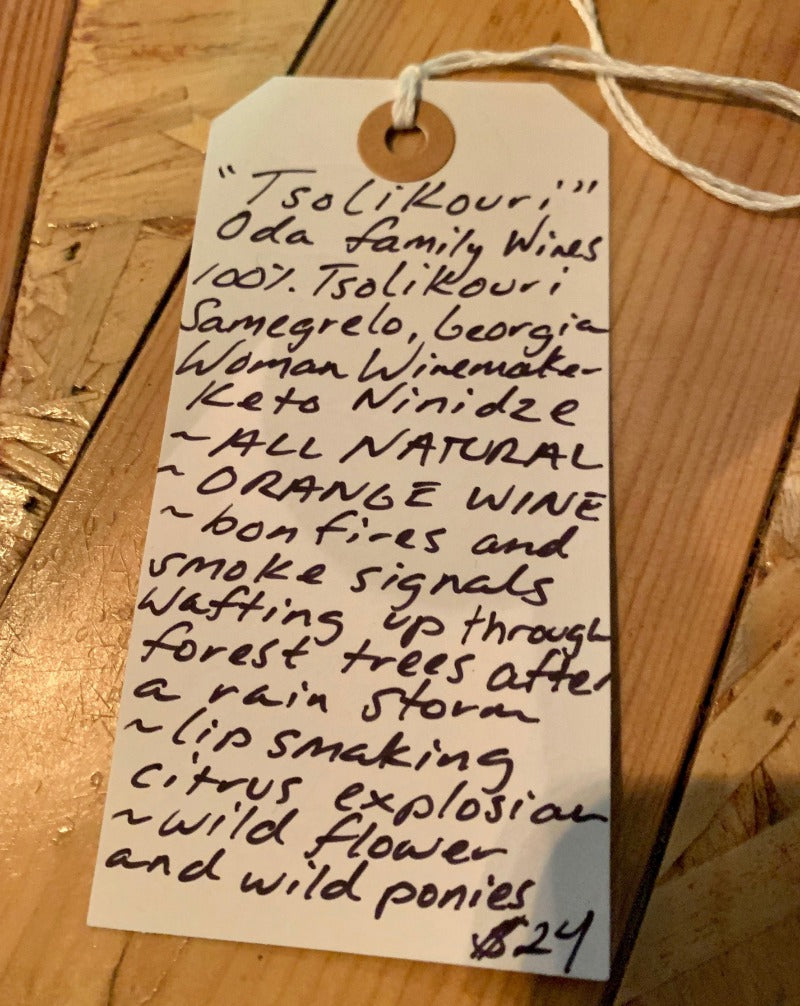 "Tsolikouri"
Oda family Wines
100% Tsolikouri
Samegrelo, Georgia
Woman Winemaker
Keto Ninidze
~ALL NATURAL
~ORANGE WINE
~bonfires and
smoke signals
wafting up through
forest trees after
a rain storm
~lip smaking
citrus explosion
~wild flower
and wild ponies
$24